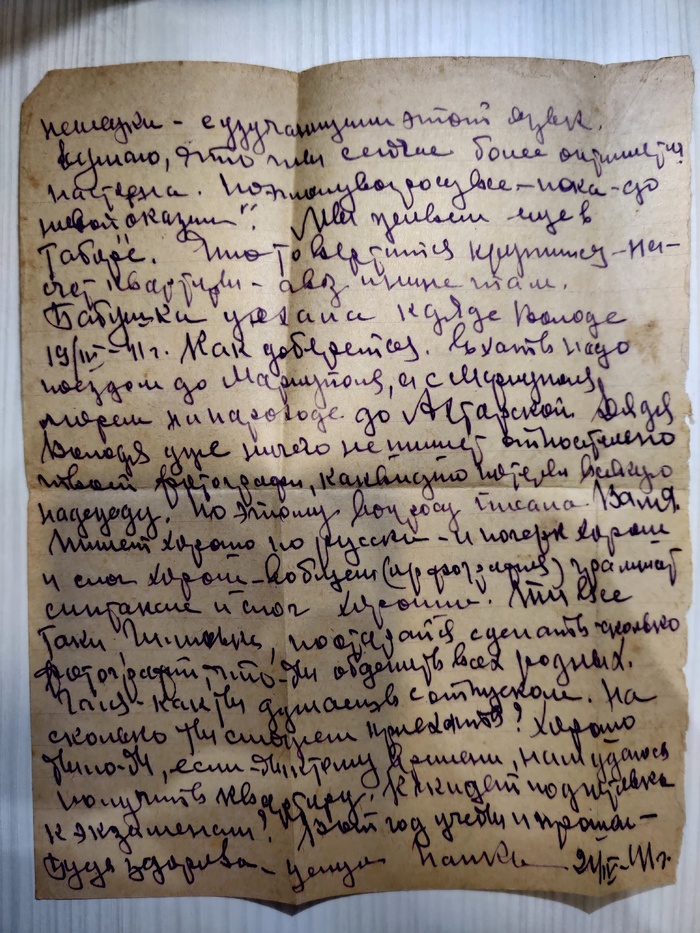 немецки - с изучающими этот язык.
Думаю, что ты сейчас более оптимист.
настроена. Поэтому вопросу все - пока - до
новой оказии". Мы живем еще в
таборе. Что то вертится крутится - на-
счет квартиры - а воз и ныне там.
Бабушка уехала к дяде Володе
19/III-41г. Как доберется. Ехать надо
поездом до Мариуполя, а с Мариуполя,
морем на пароходе до Ахтарской. Дядя
Володя уже ничего не пишет относительно
твоей фотографии, как видно потерял всякую
надежду. По этому вопросу писала Валя.
Пишет хорошо по русски - и почерк хорош
и слог хорош - вобщем (орфография) грамот
синтаксис и слог хорошие. Ты все
таки, постарайся сделать сколько
фотографий, что-бы обделить всех родных.
Галя - как ты думаешь с отпуском. На
сколько ты сможешь приехать? Хорошо
было-бы, если-бы к тому времени, нам удалось
получить квартиру. Как идет подготовка
к экзаменам? Вот год учебы и прошел -
Будь здорова - целую Папка 21/III-41г.